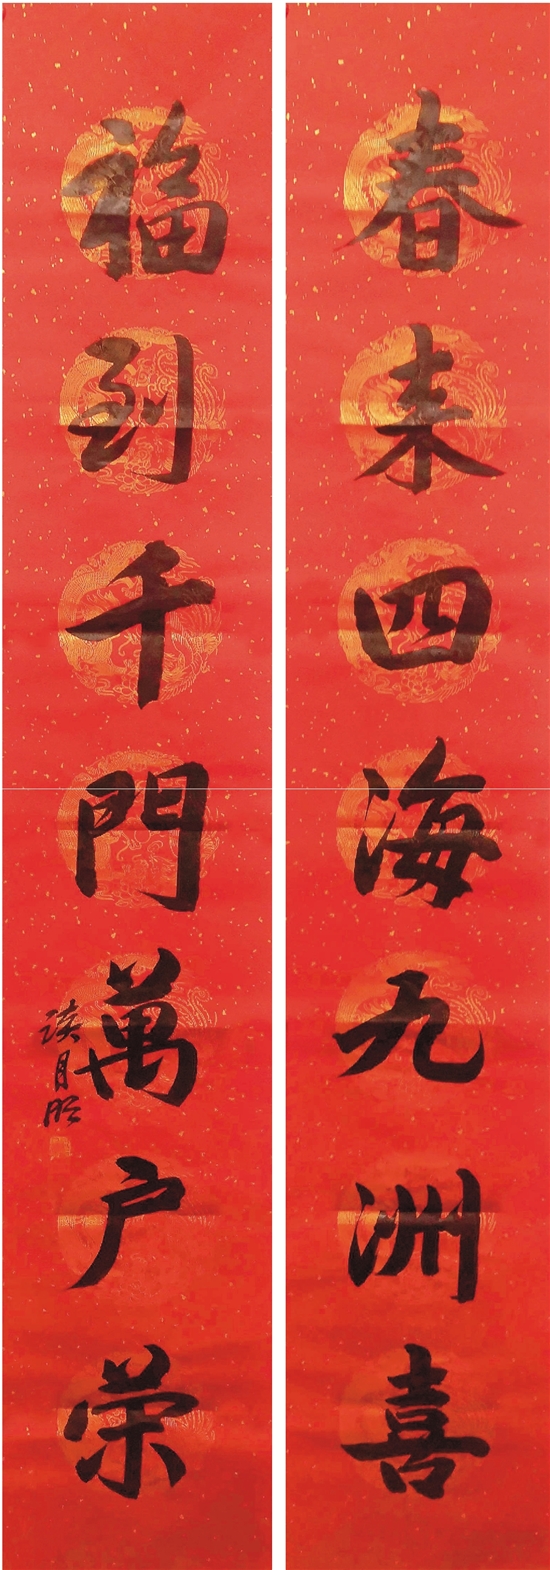 春来四海九洲喜
福到千門萬户荣
谈月明